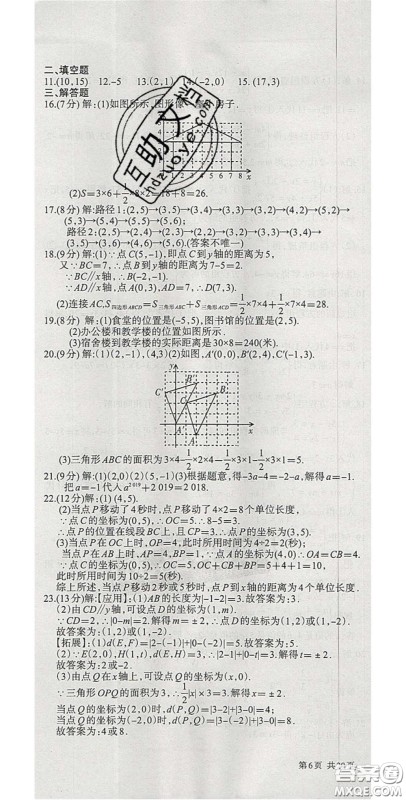 二、填空题
11.(10,15) 12.-5 13.(2,1) 14.(-2,0) 15.(17,3)
三、解答题
16.(7分)解:(1)如图所示,图形像 房子.
(2)S=3×6+½×8×2= +8=26.
17.(8分)解:路径1:(2,5)→(3,5)→(3,4)→(3,3)→(3,2)→(4,2)→(5,2)→
(5,3)→(5,4)→(5,5)→(5,6);
路径2:(2,5)→(2,4)→(2,3)→(2,2)→(3,2)→(3,3)→(3,4)→
(3,5)→(3,6)→(4,6)→(5,6).(答案不唯一)
18.(9分)解:(1)∵点C(5,-1),即点C到y轴的距离为5,
又∵BC=7,∴点B到y轴的距离为7-5=2.
∵BC∥x轴,∴B(-2,-1).
∵AD∥x轴,点A(0,3),AD=7,∴D(7,3).
(2)连接AC,S四边形ABCD=S三角形ABC+S三角形ACD=½×7×4+½×7×4=28.
19.(8分)解:(1)食堂的位置是(-5,5),图书馆的位置是(2,5).
(2)办公楼和教学楼的位置如图所示.
(3)宿舍楼到教学楼的实际距离是30×8=240(米).
20.(9分)解:(1)(2,-1),(4,3)(2)如图,A′(0,0),B′(2,4),C′(-1,3).
(3)三角形ABC的面积为3×4-½×2×4-½×3×1-½×3×1=5.
21.(9分)解:(1)(2,0)(2)(5,-1)(3)根据题意,得-3a-4=-2-a,解得a=-1.
把a=-1代入a²⁰¹⁹+2 019=2 018.
22.(12分)解:(1)(4,5).
(2)当点P移动了4秒时,点P移动了4×2=8个单位长度,
∵点C的坐标为(0,5),∴OC=5.∴8-5=3.
∴点P的位置在线段BC上,且CP=3.∴点P的坐标为(3,5).
(3)当点P在OC上时,OP=4,此时所用时间为4÷2=2(秒);
当点P在AB上时,AP=4,BP=1.∵点A的坐标为(4,0).∴OA=CB=4.
∵点C的坐标为(0,5),∴OC=5.∴OC+CB+BP=5+4+1=10.
此时所用时间为10÷2=5(秒).
综上所述,当点P移动2秒或5秒时,点P到x轴的距离为4个单位长度.
23.(13分)解:【应用】:(1)AB的长度为|-1-2|=3.故答案为:3.
(2)由CD∥y轴,可设点D的坐标为(1,m).
∵CD=2,∴|0-m|=2.解得m=±2,∴点D的坐标为(1,2)或(1,-2).
故答案为:(1,2)或(1,-2).
【拓展】:(1)d(E,F)=|2-(-1)|+|0-(-2)|=5.故答案为:5.
(2)∵E(2,0),H(1,t),d(E,H)=3,∴|2-1|+|0-t|=3.解得t=±2.
故答案为:2或-2.
(3)由点Q在x轴上,可设点Q的坐标为(x,0).
∵三角形OPQ的面积为3,∴½|x|×3=3.解得x=±2.
当点Q的坐标为(2,0)时,d(P,Q)=|3-2|+|3-0|=4;
当点Q的坐标为(-2,0)时,d(P,Q)=|3-(-2)|+|3-0|=8.
故答案为:4或8.
第6页 共20页
互助文档
hdzuoye.com
答案圈
MXQE.COM